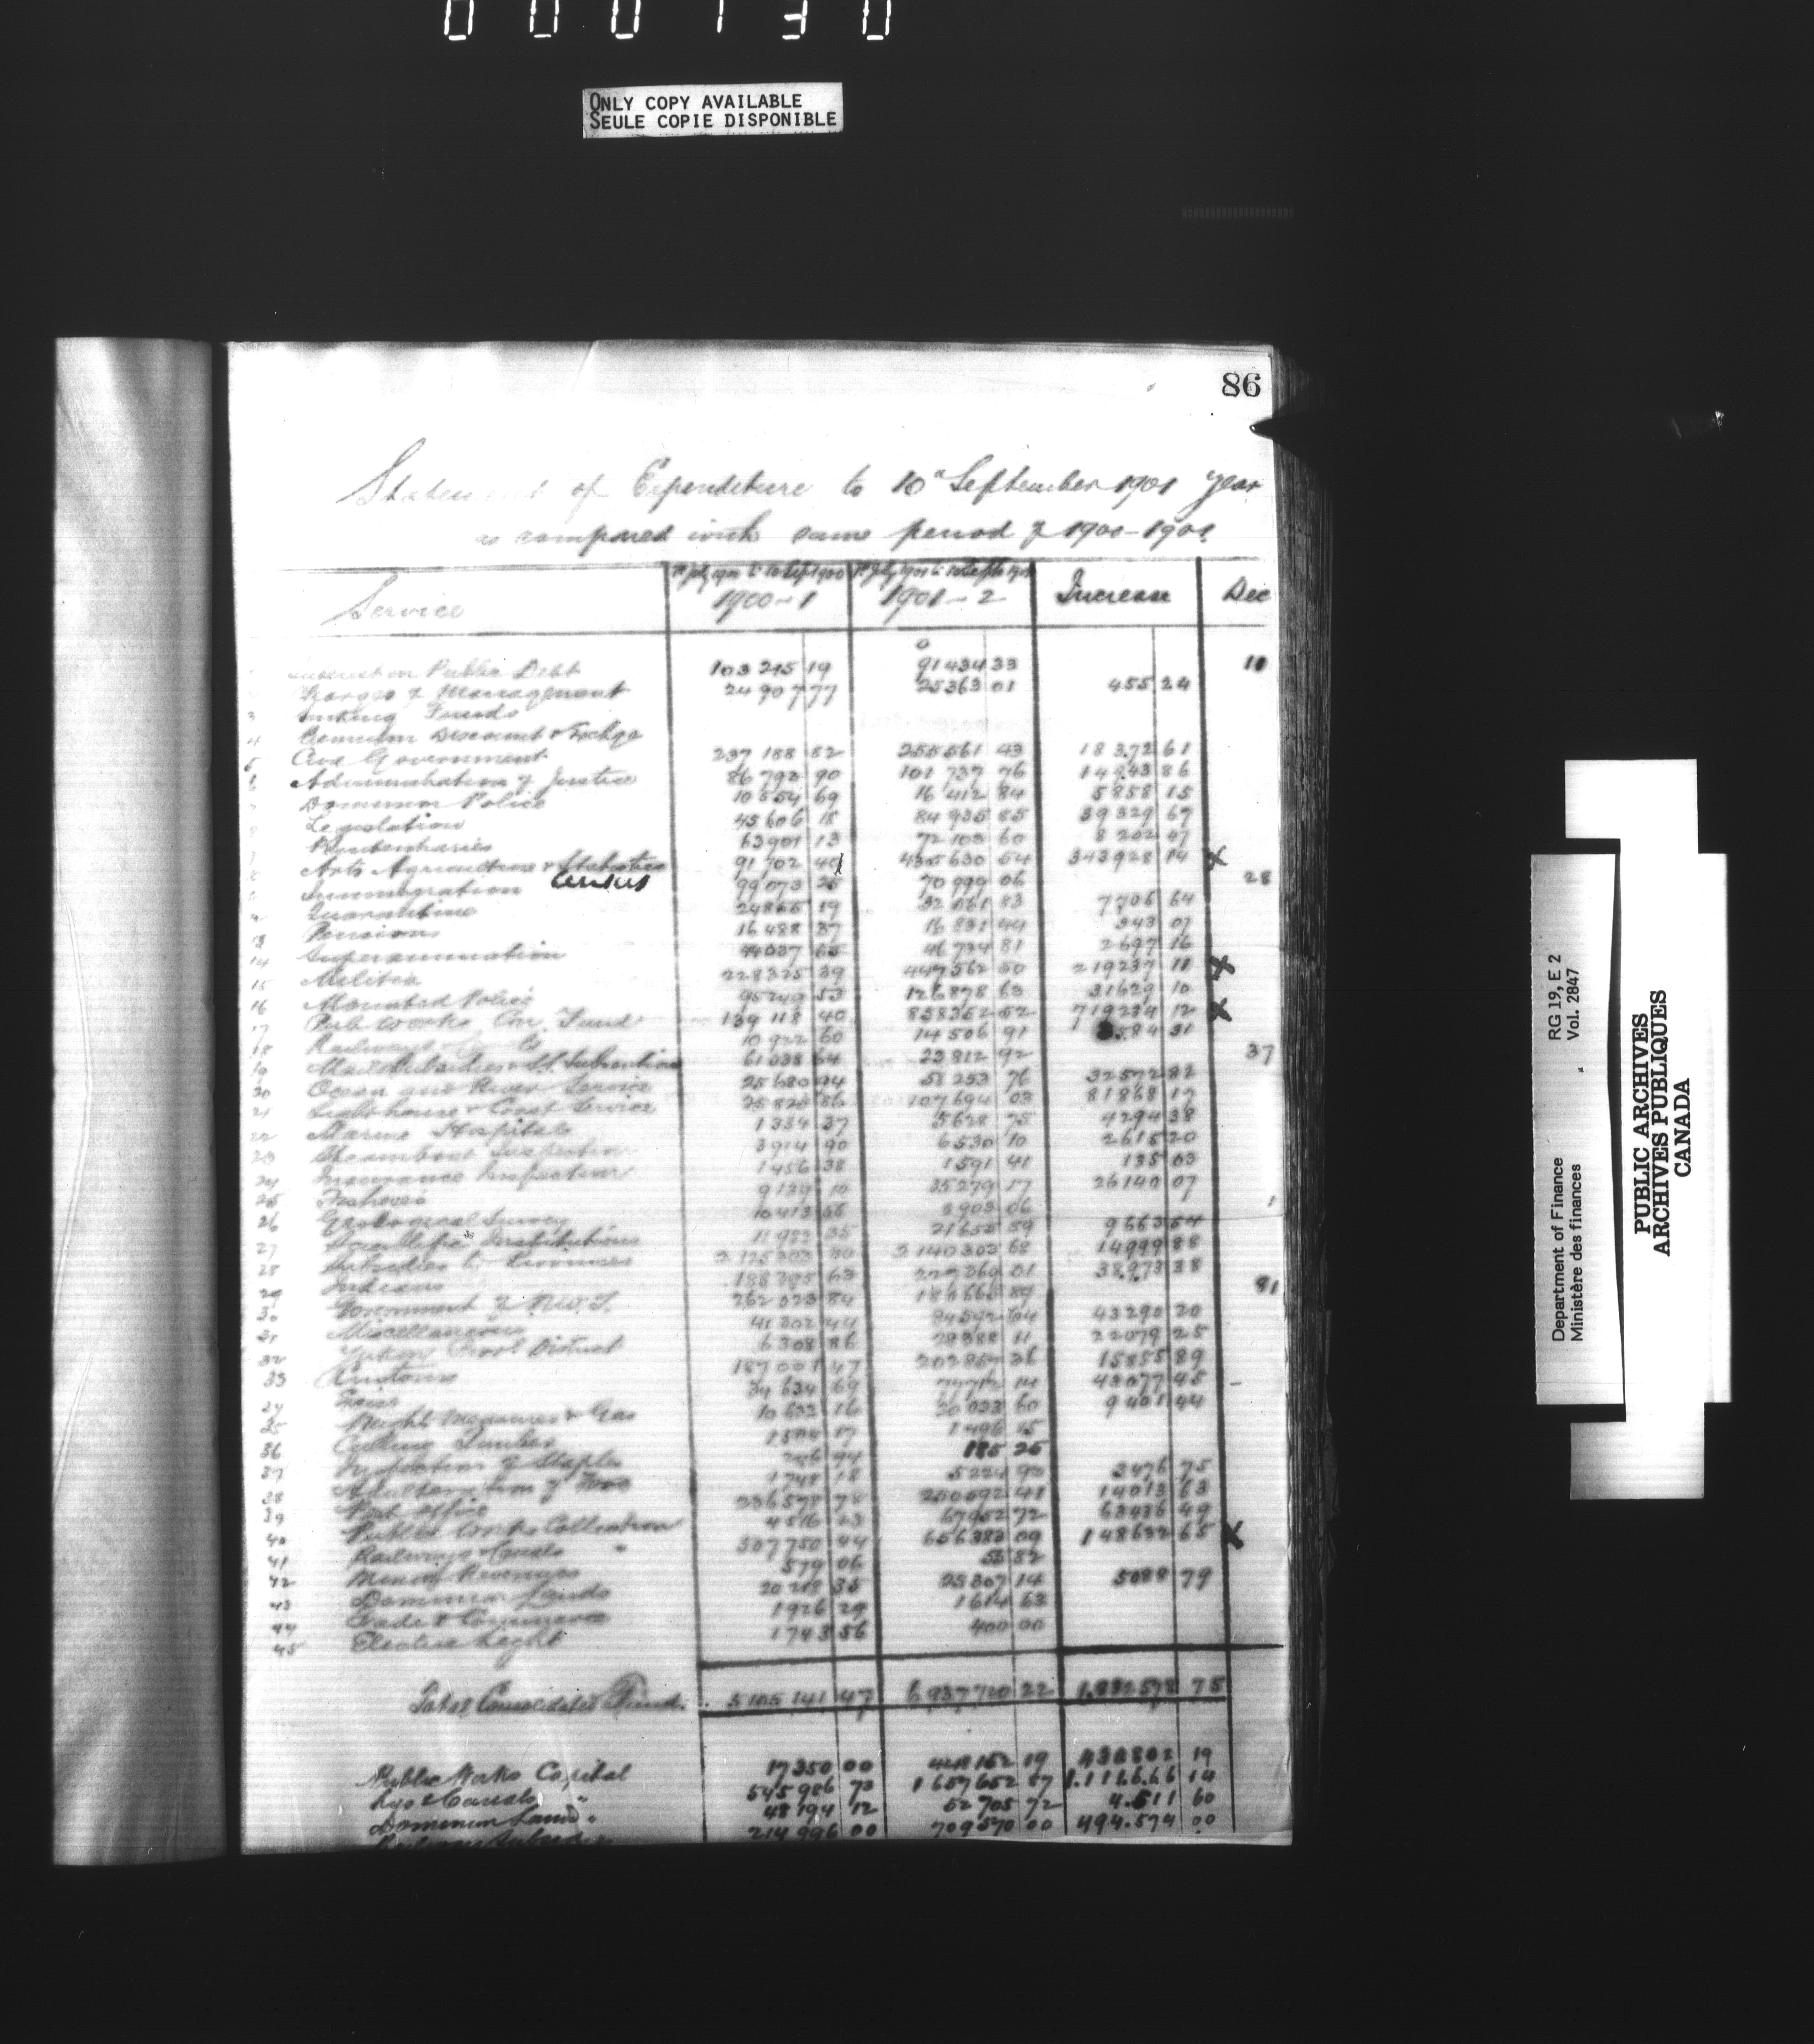 000130
ONLY COPY AVAILABLE
SEULE COPIE DISPONIBLE
86
Statement of Expenditure to 10" September 1901 year
as compared with same period of 1900-1901
Service 1900-1 1901-2 Increase Dec
Interest on Public Debt 103 215 19 91434 33 11
Charges of Management 24 907 77 25363 01 455 24
3 Sinking Funds
4 Premium Discount & Exchge
5 Civil Government 237 188 82 255561 43 18 372 61
6 Administration of Justice 86 793 90 101 737 76 14943 86
Dominion Police 10 554 69 16 412 84 5858 15
Legislation 45 606 18 84 935 85 39 329 67
Penitentiaries 63901 13 72 103 60 8 202 47
Arts Agriculture & Statistics 91 702 40 435630 54 343928 14 X
Census
Immigration 99 073 25 70 999 06 28
Quarantine 24855 19 32 561 83 7706 64
13 Pensions 16 488 37 16 831 44 343 07
14 Superannuation 44037 65 46 734 81 2697 16
15 Militia 228325 39 447562 50 219237 11 X
16 Mounted Police 95249 53 126878 63 31629 10
17 Pub Works Con. Fund 139 118 40 858352 52 719234 12 X
18 Railways 10 922 60 14 506 91 3584 31
19 Mail Subsidies & St. Subventions 61038 64 23 812 92 37
20 Ocean and River Service 25680 94 58 253 76 32572 82
21 Lighthouse & Coast Service 25825 86 107694 03 81868 17
22 Marine Hospitals 1334 37 5628 75 4294 38
23 Steamboat Inspection 3914 90 6530 10 2615 20
24 Insurance Inspection 1456 38 1591 41 135 03
25 Fisheries 9139 10 35279 17 26140 07
26 Geological Survey 10413 55 8903 06 1
27 Scientific Institutions 11 992 35 21655 89 9663 54
28 Subsidies to Provinces 2 125303 80 2 140303 68 14999 88
29 Indians 188395 63 227369 01 38973 38
30 Government of N.W.T. 262 023 84 89 81
31 Miscellaneous 41 302 44 84592 64 43290 20
32 Yukon Prov. District 6308 86 28388 11 22079 25
33 Customs 187 001 47 202857 36 15855 89
34 Excise 34 634 69 77712 14 43077 45
35 Weights Measures & Gas 10 632 16 20 033 60 9 401 44
36 Culling Timber 1504 17 1496 15
37 Inspection of Staples 94 185 25
38 Adulteration of Food 1748 18 5224 93 3476 75
39 Post Office 236578 78 250592 41 14013 63
40 Public Works Collection 4516 23 67952 72 63436 49
41 Railways & Canals " 507750 44 656383 09 148632 65 X
42 Minor Revenues 579 06 55 82
43 Dominion Lands 20 218 35 25307 14 5088 79
44 Trade & Commerce 1926 29 1614 63
45 Electric Light 1743 56 400 00
Total Consolidated Fund. 5105 141 47 6 937720 22 1.832578 75
Public Works Capital 17350 00 448152 19 430802 19
Rys & Canals " 545986 73 1 657652 87 1.111666 14
Dominion Lands " 48 194 12 52 705 72 4.511 60
214 996 00 709570 00 494.574 00
RG 19, E 2
Vol. 2847
Department of Finance
Ministère des finances
PUBLIC ARCHIVES
ARCHIVES PUBLIQUES
CANADA